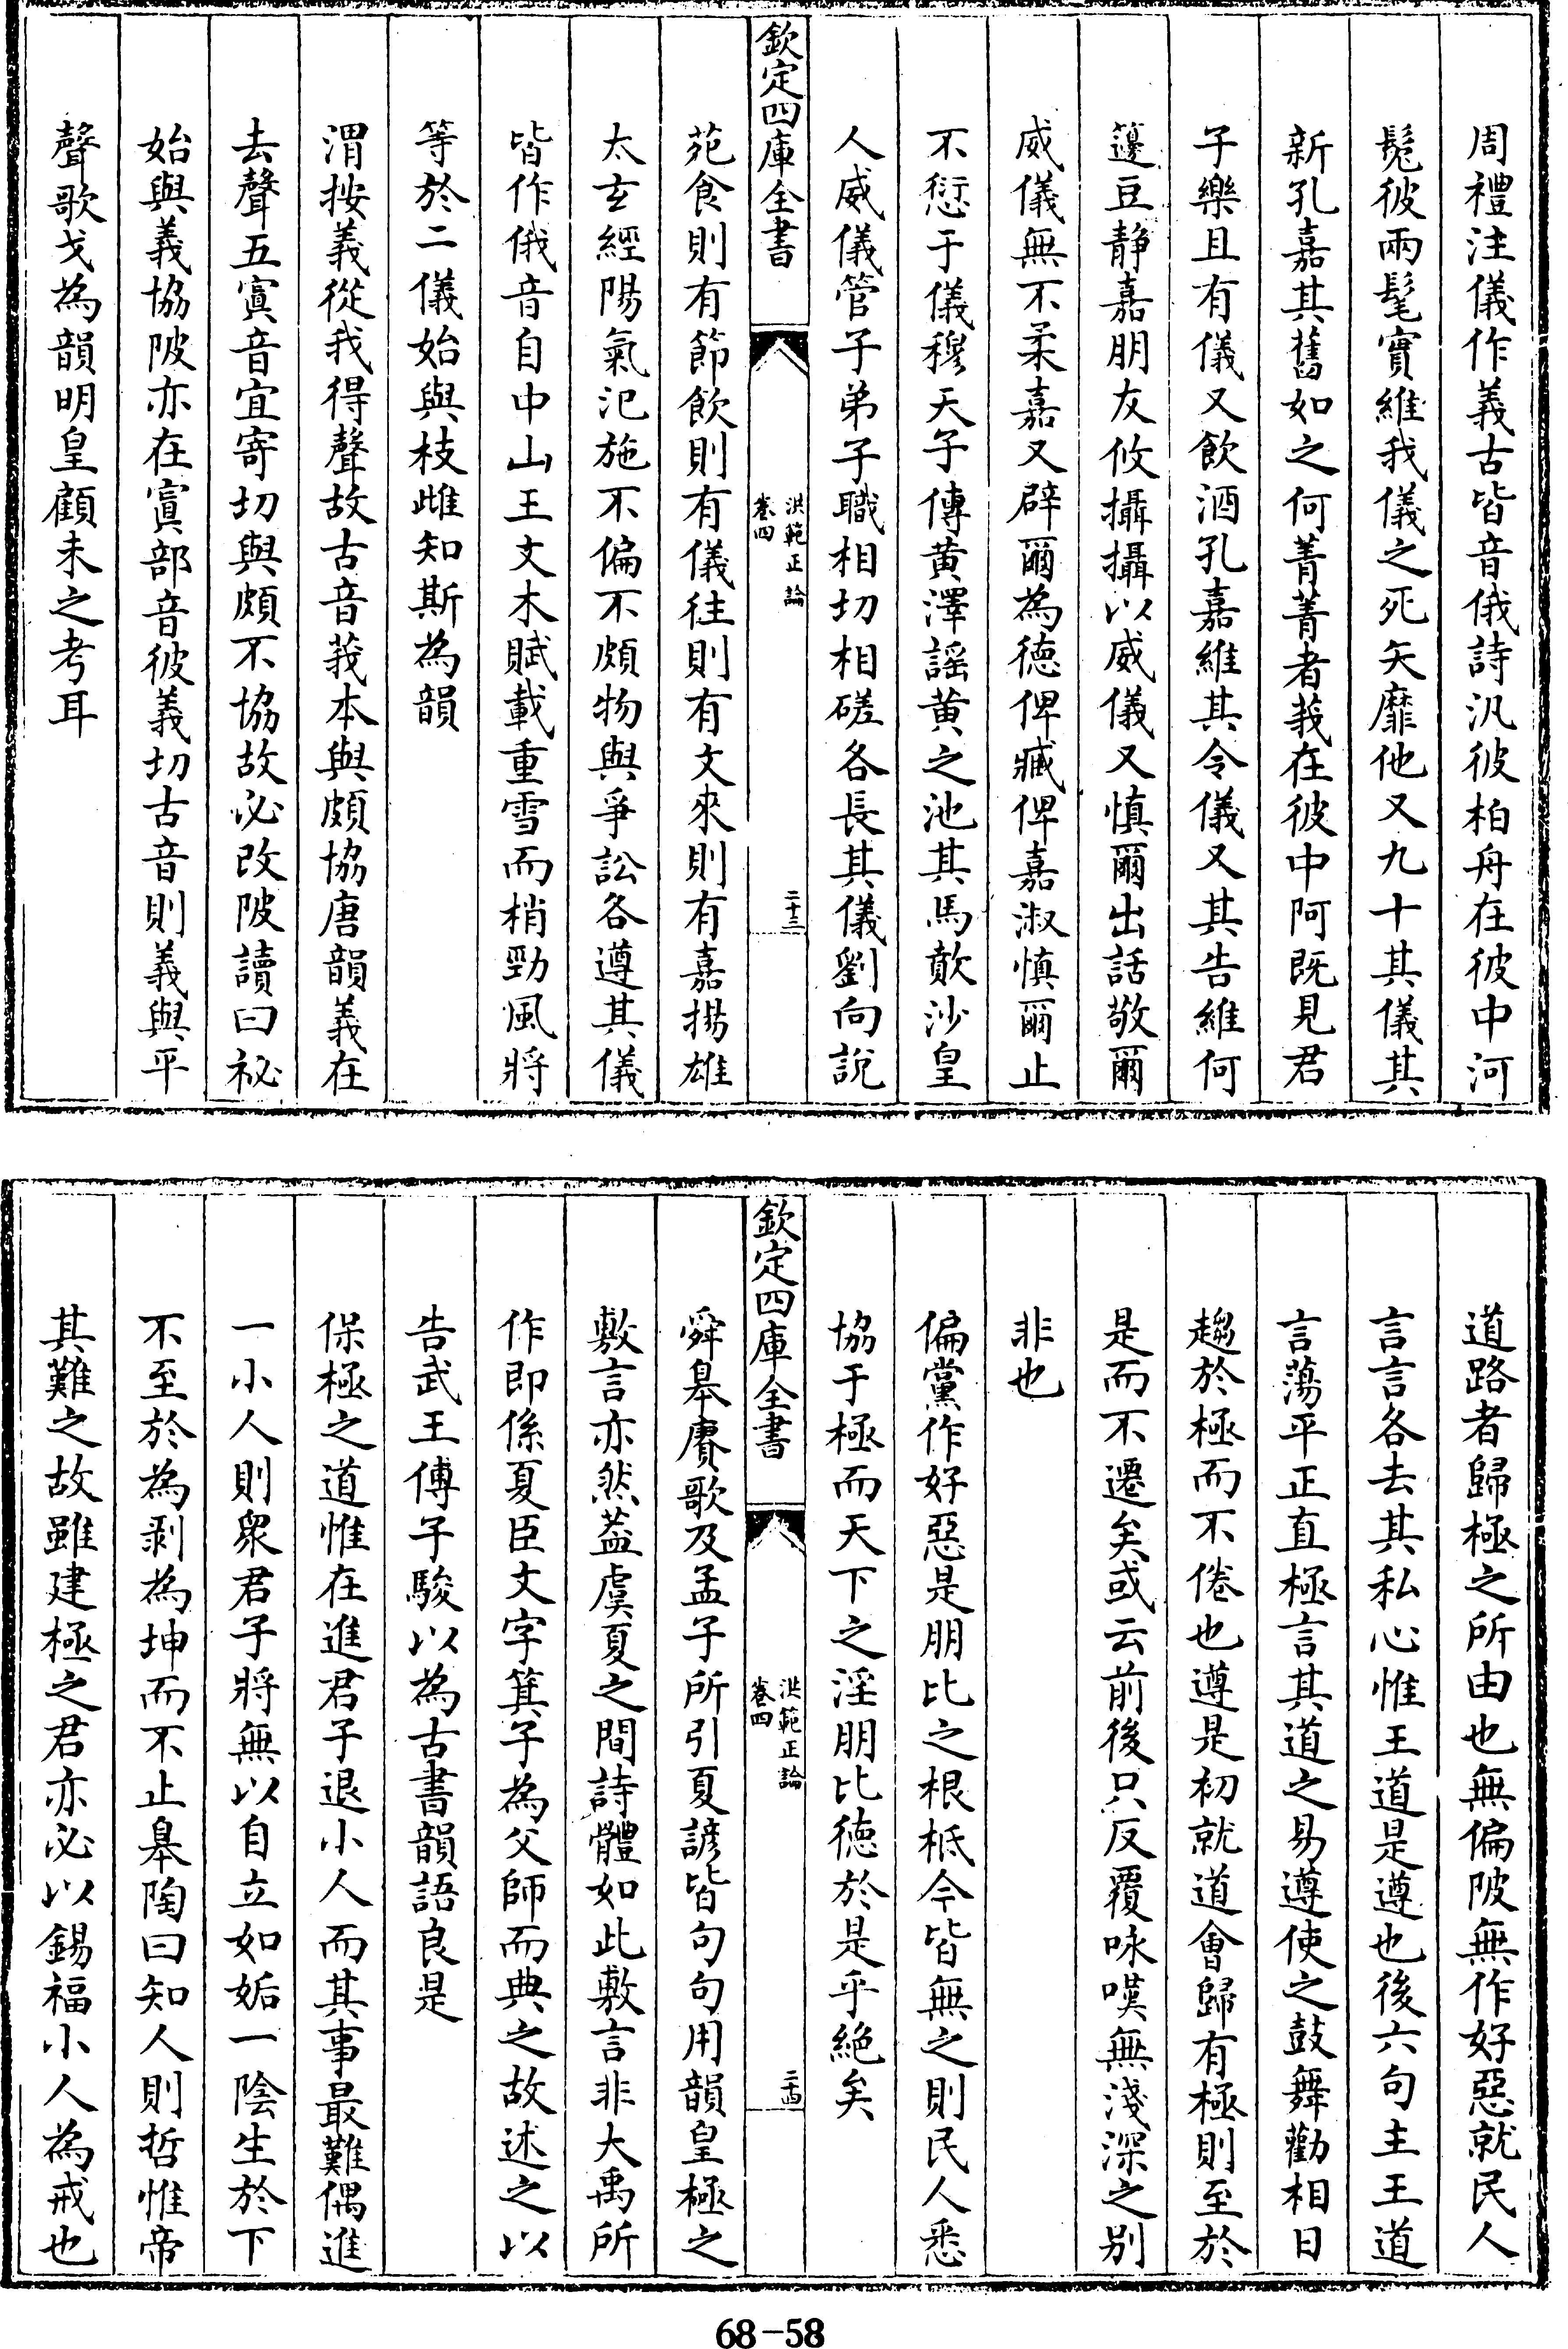 周禮注儀作義古皆音俄詩汎彼柏舟在彼中河
髧彼兩髦實維我儀之死矢靡他又九十其儀其
新孔嘉其舊如之何菁菁者莪在彼中阿既見君
子樂且有儀又飲酒孔嘉維其令儀又其告維何
籩豆静嘉朋友攸攝攝以威儀又慎爾出話敬爾
威儀無不柔嘉又辟爾為德俾臧俾嘉淑慎爾止
不愆于儀穆天子傳黃澤謠黃之池其馬歕沙皇
人威儀管子弟子職相切相磋各長其儀劉向說
欽定四庫全書
洪範正論
卷四
二十三
苑食則有節飲則有儀往則有文來則有嘉揚雄
太玄經陽氣氾施不偏不頗物與爭訟各遵其儀
皆作俄音自中山王文木賦載重雪而梢勁風將
等於二儀始與枝雌知斯為韻
渭按義從我得聲故古音莪本與頗協唐韻義在
去聲五寘音宜寄切與頗不協故必改陂讀曰祕
始與義協陂亦在寘部音彼義切古音則義與平
聲歌戈為韻明皇顧未之考耳
道路者歸極之所由也無偏陂無作好惡就民人
言言各去其私心惟王道是遵也後六句主王道
言蕩平正直極言其道之易遵使之鼓舞勸相日
趨於極而不倦也遵是初就道會歸有極則至於
是而不遷矣或云前後只反覆咏嘆無淺深之别
非也
偏黨作好惡是朋比之根柢今皆無之則民人悉
協于極而天下之淫朋比德於是乎絶矣
欽定四庫全書
洪範正論
卷四
二十四
舜皋賡歌及孟子所引夏諺皆句句用韻皇極之
敷言亦然葢虞夏之間詩體如此敷言非大禹所
作即係夏臣文字箕子為父師而典之故述之以
告武王傅子駿以為古書韻語良是
保極之道惟在進君子退小人而其事最難偶進
一小人則衆君子將無以自立如姤一陰生於下
不至於為剥為坤而不止皋陶曰知人則哲惟帝
其難之故雖建極之君亦必以錫福小人為戒也
68-58